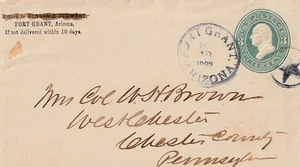 FORT GRANT, Arizona,
If not delivered within 10 days.
FORT GRANT,
ARIZONA
U.S. POSTAGE
Mrs Col W. H. Brown
West Chester
Chester County
Pennsyl